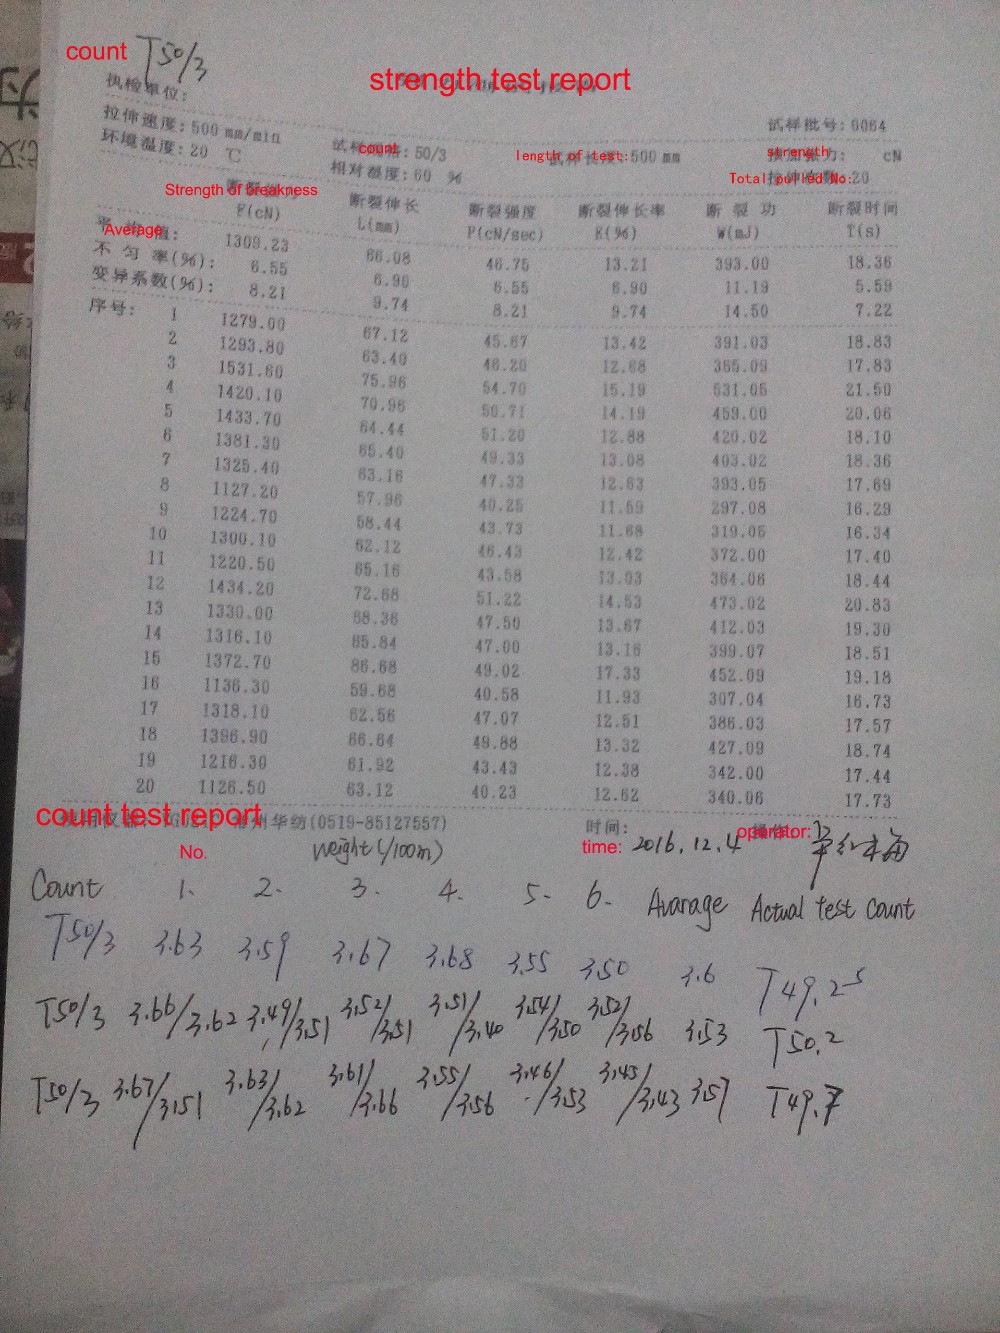 count T50/3
strength test report
执检单位:
拉伸速度: 500 mm/min 试样 count: 50/3 length of test:500 mm 试样批号: 0064
环境温度: 20 ℃ 相对湿度: 60 % strength: cN
Total pulled No:20
Strength of breakness 断裂伸长 断裂强度 断裂伸长率 断 裂 功 断裂时间
F(cN) L(mm) P(cN/sec) E(%) W(mJ) T(s)
Average 值: 1309.23 66.08 46.75 13.21 393.00 18.36
不 匀 率(%): 6.55 6.90 6.55 6.90 11.19 5.59
变异系数(%): 8.21 9.74 8.21 9.74 14.50 7.22
序号: 1 1279.00 67.12 45.67 13.42 391.03 18.83
2 1293.80 63.40 46.20 12.68 365.09 17.83
3 1531.60 75.96 54.70 15.19 531.05 21.50
4 1420.10 70.96 50.71 14.19 459.00 20.06
5 1433.70 64.44 51.20 12.88 420.02 18.10
6 1381.30 65.40 49.33 13.08 403.02 18.36
7 1325.40 63.16 47.33 12.63 393.05 17.69
8 1127.20 57.96 40.25 11.59 297.08 16.29
9 1224.70 58.44 43.73 11.68 319.05 16.34
10 1300.10 62.12 46.43 12.42 372.00 17.40
11 1220.50 65.16 43.58 13.03 364.06 18.44
12 1434.20 72.68 51.22 14.53 473.02 20.83
13 1330.00 68.36 47.50 13.67 412.03 19.30
14 1316.10 65.84 47.00 13.16 399.07 18.51
15 1372.70 86.68 49.02 17.33 452.09 19.18
16 1136.30 59.68 40.58 11.93 307.04 16.73
17 1318.10 62.56 47.07 12.51 386.03 17.57
18 1396.90 66.64 49.88 13.32 427.09 18.74
19 1216.30 61.92 43.43 12.38 342.00 17.44
20 1126.50 63.12 40.23 12.62 340.06 17.73
count test report 州华纺(0519-85127557) 时间: operator:
No. Weight(/100m) time: 2016.12.4
Count 1. 2. 3. 4. 5. 6. Avarage Actual test count
T50/3 3.63 3.59 3.67 3.68 3.55 3.50 3.6 T49.25
T50/3 3.66/3.62 3.49/3.51 3.52/3.51 3.51/3.40 3.54/3.50 3.52/3.56 3.53 T50.2
T50/3 3.67/3.51 3.63/3.62 3.61/3.66 3.55/3.56 3.46/3.53 3.45/3.43 3.57 T49.7